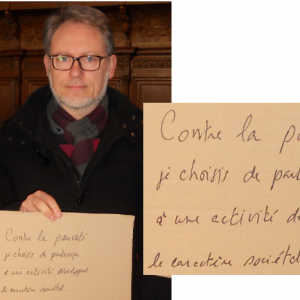 Contre la pauvreté
je choisis de participer
à une activité développant
le caractère sociétal.
Contre la pau
je choisis de par
à une activité dé
le caractère sociétal